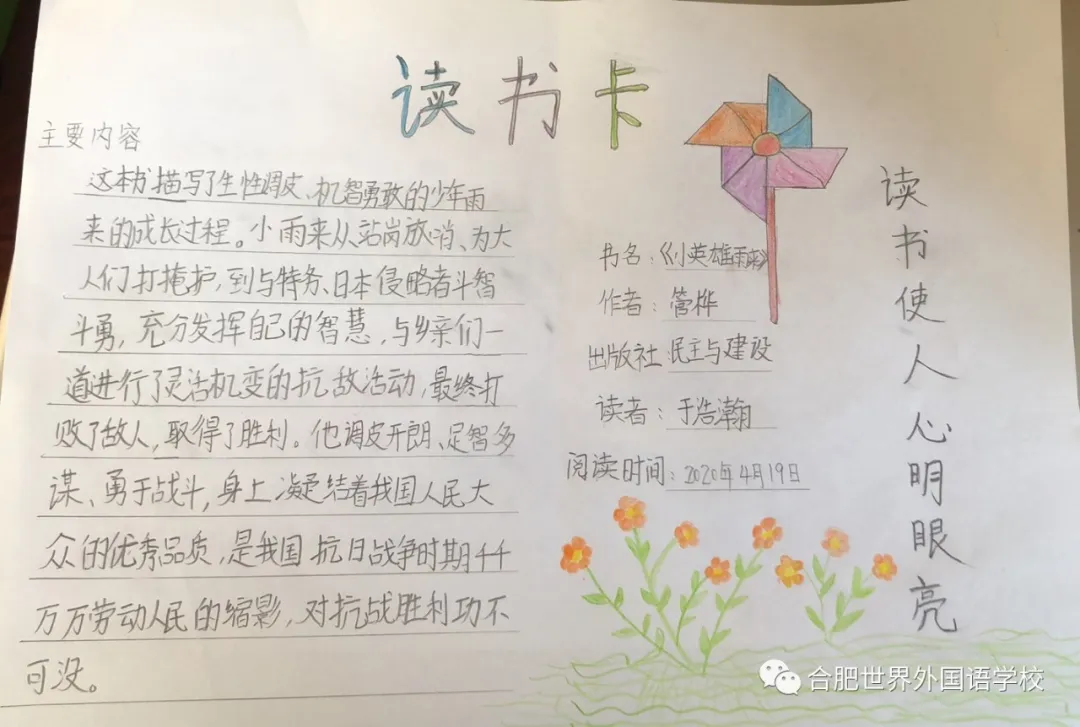 读书卡
主要内容
这本书描写了生性调皮、机智勇敢的少年雨
来的成长过程。小雨来从站岗放哨、为大
人们打掩护,到与特务、日本侵略者斗智
斗勇,充分发挥自己的智慧,与乡亲们一
道进行了灵活机变的抗敌活动,最终打
败了敌人,取得了胜利。他调皮开朗、足智多
谋、勇于战斗,身上凝结着我国人民大
众的优秀品质,是我国抗日战争时期千千
万万劳动人民的缩影,对抗战胜利功不
可没。
书名:《小英雄雨来》
作者:管桦
出版社:民主与建设
读者:于浩瀚
阅读时间:2020年4月19日
读书使人心明眼亮
合肥世界外国语学校